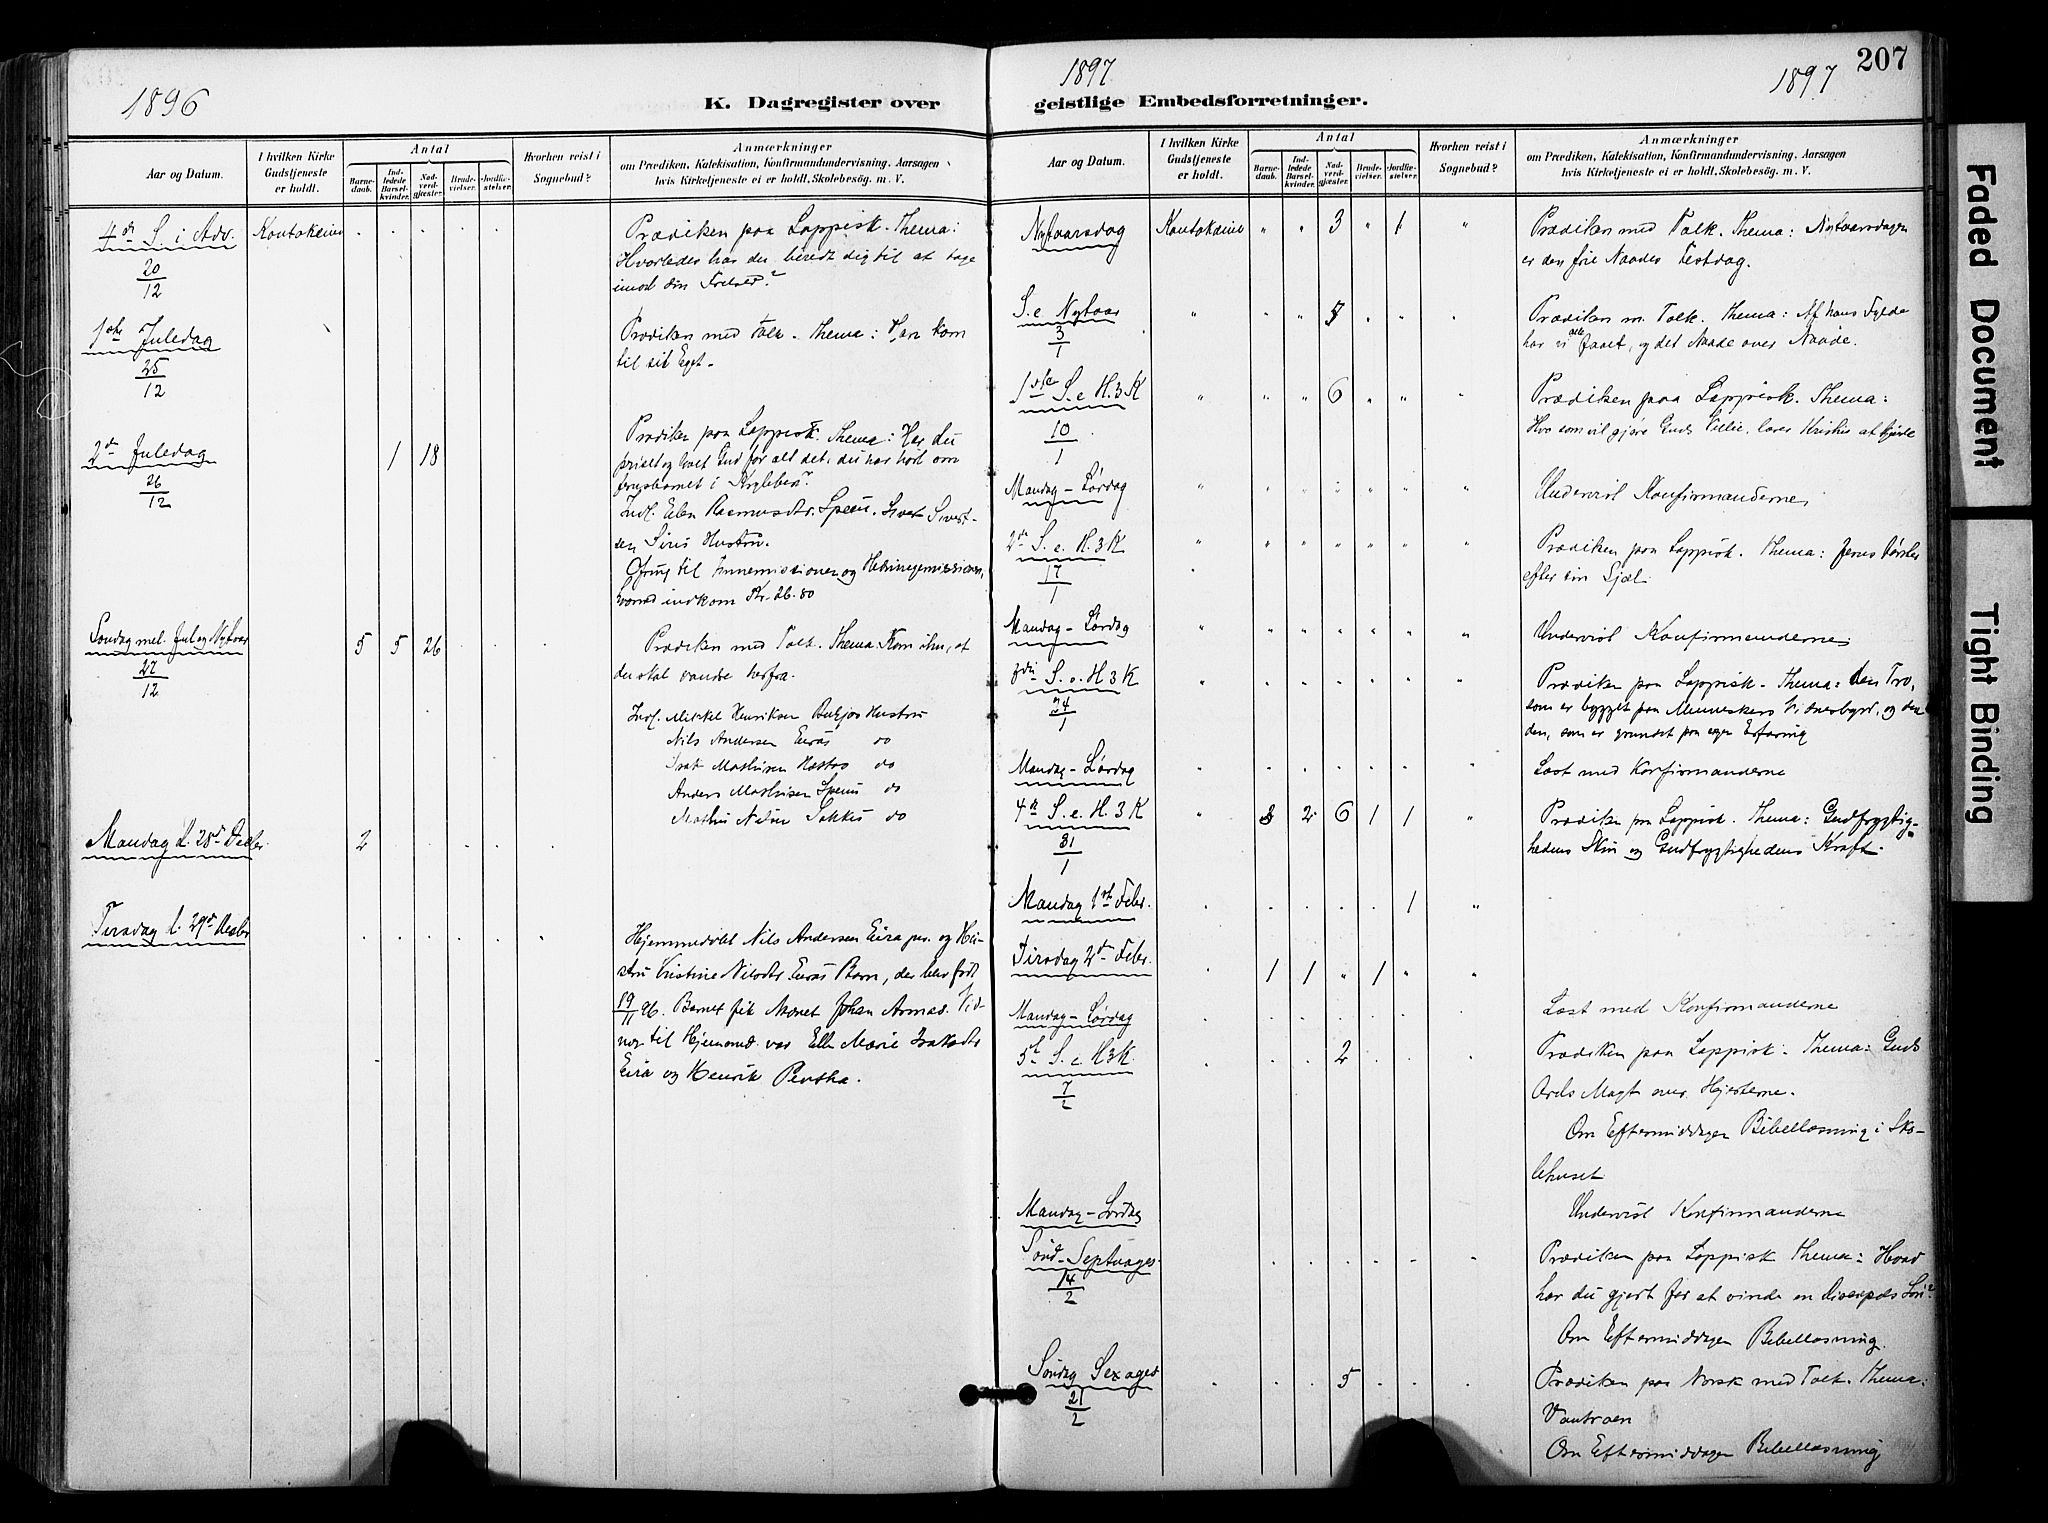 1896
K. Dagregister over
Aar og Datum.
I hvilken Kirke
Gudstjeneste
er holdt.
Antal
Barne-
daab.
Ind-
ledede
Barsel-
kvinder.
Nad-
verd-
gjæster.
Brude-
vielser.
Jordfæ-
stelser.
Hvorhen reist i
Sognebud?
Anmærkninger
om Prædiken, Katekisation, Konfirmandundervisning, Aarsagen
hvis Kirketjeneste ei er holdt, Skolebesög. m. V.
4de S. i Adv. Koutokeino
20/12
Prædiken paa Lappisk. Thema:
Hvorledes har du beredt dig til at tage
imod din Frelser?
1ste Juledag
25/12
Prædiken med Tolk. Thema: Han kom
til sit Eget.
2den Juledag 1 18
26/12
Prædiken paa Lappisk. Thema: Har du
priset og lovet Gud for alt det, du har hørt om
i
Indl. Elen Rasmusdtr. Spein. Sivert Sivert-
sen Siris Hustru.
Ofring til Indremissionen og Hedningemissionen,
hvorved indkom Kr. 26.80
Søndag mel. Jul og Nytaar 5 5 26
27/12
Prædiken med Tolk. Thema: Kom ihu, at
du skal vandre herfra.
Indl. Mikkel Henriksen Hustru
Nils Andersen Eiras do
Isak Mathisen Hætas do
Anders Mathisen do
do
Mandag d. 28de Decbr. 2
Tirsdag d. 29de Decbr
Hjemmedøbt Nils Andersen Eira jun. og Hu-
stru Kristine Nilsdtr Eiras Barn, der blev født
19/11 96. Barnet fik Navnet Johan Armas. Vid-
ner til Hjemmed. var Ellen Marie Isaksdtr
Eira og Henrik Pentha.
1897
1897
207
geistlige Embedsforretninger.
Aar og Datum.
I hvilken Kirke
Gudstjeneste
er holdt.
Antal
Barne-
daab.
Ind-
ledede
Barsel-
kvinder.
Nad-
verd-
gjæster.
Brude-
vielser.
Jordfæ-
stelser.
Hvorhen reist i
Sognebud?
Anmærkninger
om Prædiken, Katekisation, Konfirmandundervisning, Aarsagen
hvis Kirketjeneste ei er holdt, Skolebesög. m. V.
Nytaarsdag Koutokeino " " 3 " 1 "
Prædiken med Tolk. Thema: Nytaarsdagen
er den frie Naades Festdag.
S. e Nytaar
3/1
Prædiken m. Tolk. Thema: Af hans Fylde
har vi alle faaet, og det Naade over Naade.
1ste S. e H. 3 K 6
10/1
Prædiken paa Lappisk. Thema:
Hvo som vil gjøre Guds Villie, lærer Kristus at kjende
Mandag - Lørdag
Undervist Konfirmanderne
2den S. e. H. 3 K
17/1
Prædiken paa Lappisk. Thema: Jesus tørster
efter din Sjæl.
Mandag - Lørdag
Undervist Konfirmanderne
3die S. e. H 3 K
24/1
Prædiken paa Lappisk - Thema: den Tro,
som er bygget paa Menneskers Vidnesbyrd, og den
den, som er grundet paa egen Erfaring
Mandag - Lørdag
Læst med Konfirmanderne
4de S. e. H. 3 K 3 2 6 1 1
31/1
Prædiken paa Lappisk. Thema: Gudfrygtig-
hedens Skin og Gudfrygtighedens Kraft.
Mandag 1ste Febr. 1
Tirsdag 2den Febr. 1 1 " 1 "
Mandag - Lørdag
Læst med Konfirmanderne
5te S. e H3K. 2
7/2
Prædiken paa Lappisk. Thema: Guds
Ords Magt over Hjerterne.
Om Eftermiddagen Bibellæsning i Sko-
lehuset
Mandag - Lørdag
Undervist Konfirmanderne
Sønd. Septuages.
14/2
Prædiken paa Lappisk Thema: Hvad
har du gjort for at vinde en
Om Eftermiddagen Bibellæsning.
Søndag Sexages 5
21/2
Prædiken paa Norsk med Tolk. Thema:
Vantroen
Om Eftermiddagen Bibellæsning
Faded Document
Tight Binding